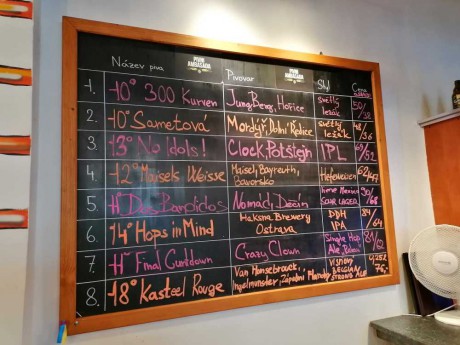 PIVNÍ AMBASÁDA
PIVNÍ AMBASÁDA
Název piva Pivovar Styl Cena
1. 10° 300 Kurven JungBerg, Hořice světlý ležák 50/38
2. 10° Sametová Mordýř, Dolní Ředice světlý ležák 48/36
3. 13° No Idols! Clock, Potštejn IPL 69/52
4. 12° Maisels Weisse Maisel, Bayreuth, Bavorsko Hefeweizen 62/47
5. 11° Dos Bandidos Nomád, Děčín Sour Lager 90/68
6. 14° Hops in Mind Maksna Brewery Ostrava DDH IPA 84/64
7. 11° Final Countdown Crazy Clown Single Hop Ale
8. 18° Kasteel Rouge Van Honsebrouck, Ingelmunster, Západní Flandry Višňový Belgian Strong Ale